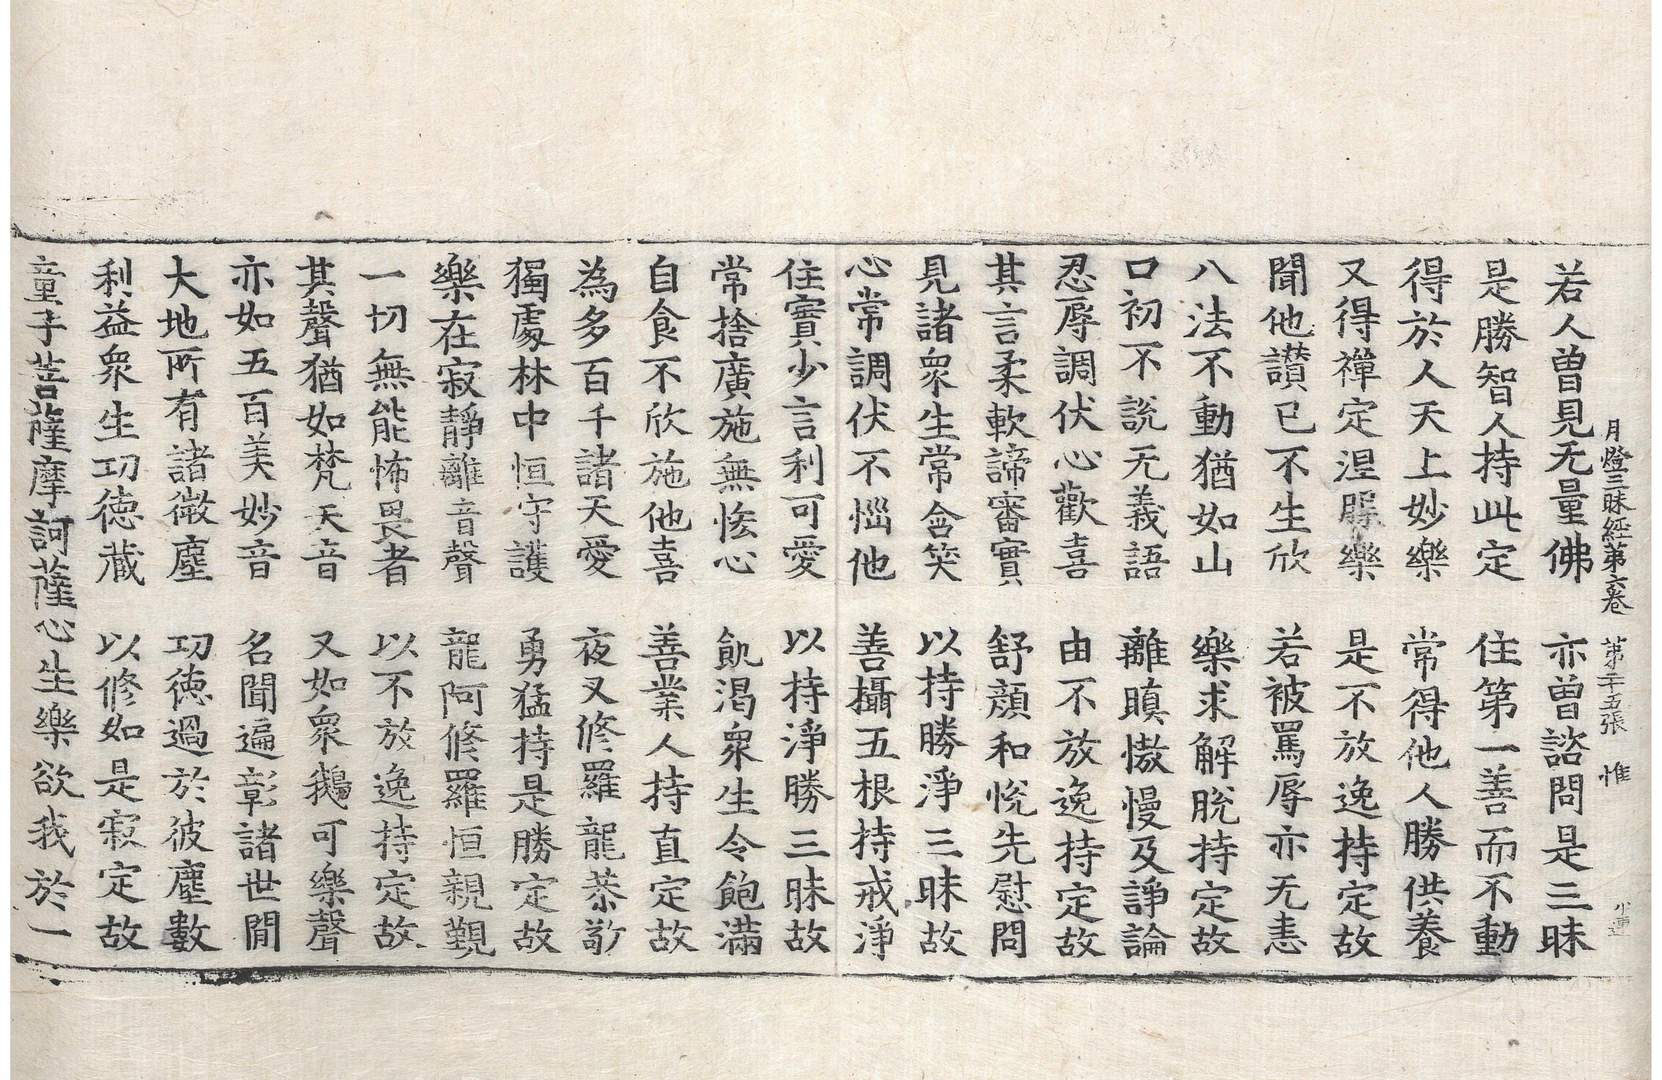 月燈三昧經第六卷 第二十五張 惟
若人曾見无量佛 亦曾諮問是三昧
是勝智人持此定 住第一善而不動
得於人天上妙樂 常得他人勝供養
又得禪定涅槃樂 是不放逸持定故
聞他讃已不生欣 若被罵辱亦无恚
八法不動猶如山 樂求解脫持定故
口初不說无義語 離瞋慠慢及諍論
忍辱調伏心歡喜 由不放逸持定故
其言柔軟諦審實 舒顔和悅先慰問
見諸衆生常含笑 以持勝淨三昧故
心常調伏不惱他 善攝五根持戒淨
住實少言利可愛 以持淨勝三昧故
常捨廣施無悋心 飢渴衆生令飽滿
自食不欣施他喜 善業人持直定故
為多百千諸天愛 夜叉修羅龍恭敬
獨處林中恒守護 勇猛持是勝定故
樂在寂靜離音聲 龍阿修羅恒親覲
一切無能怖畏者 以不放逸持定故
其聲猶如梵天音 又如衆鵝可樂聲
亦如五百美妙音 名聞遍彰諸世閒
大地所有諸微塵 功德過於彼塵數
利益衆生功德藏 以修如是寂定故
童子菩薩摩訶薩心生樂欲我於一